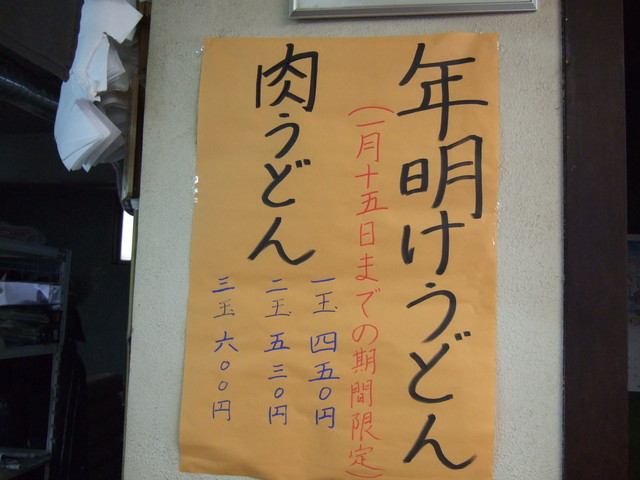 年明けうどん
(一月十五日までの期間限定)
肉うどん
一玉 四五〇円
二玉 五三〇円
三玉 六〇〇円